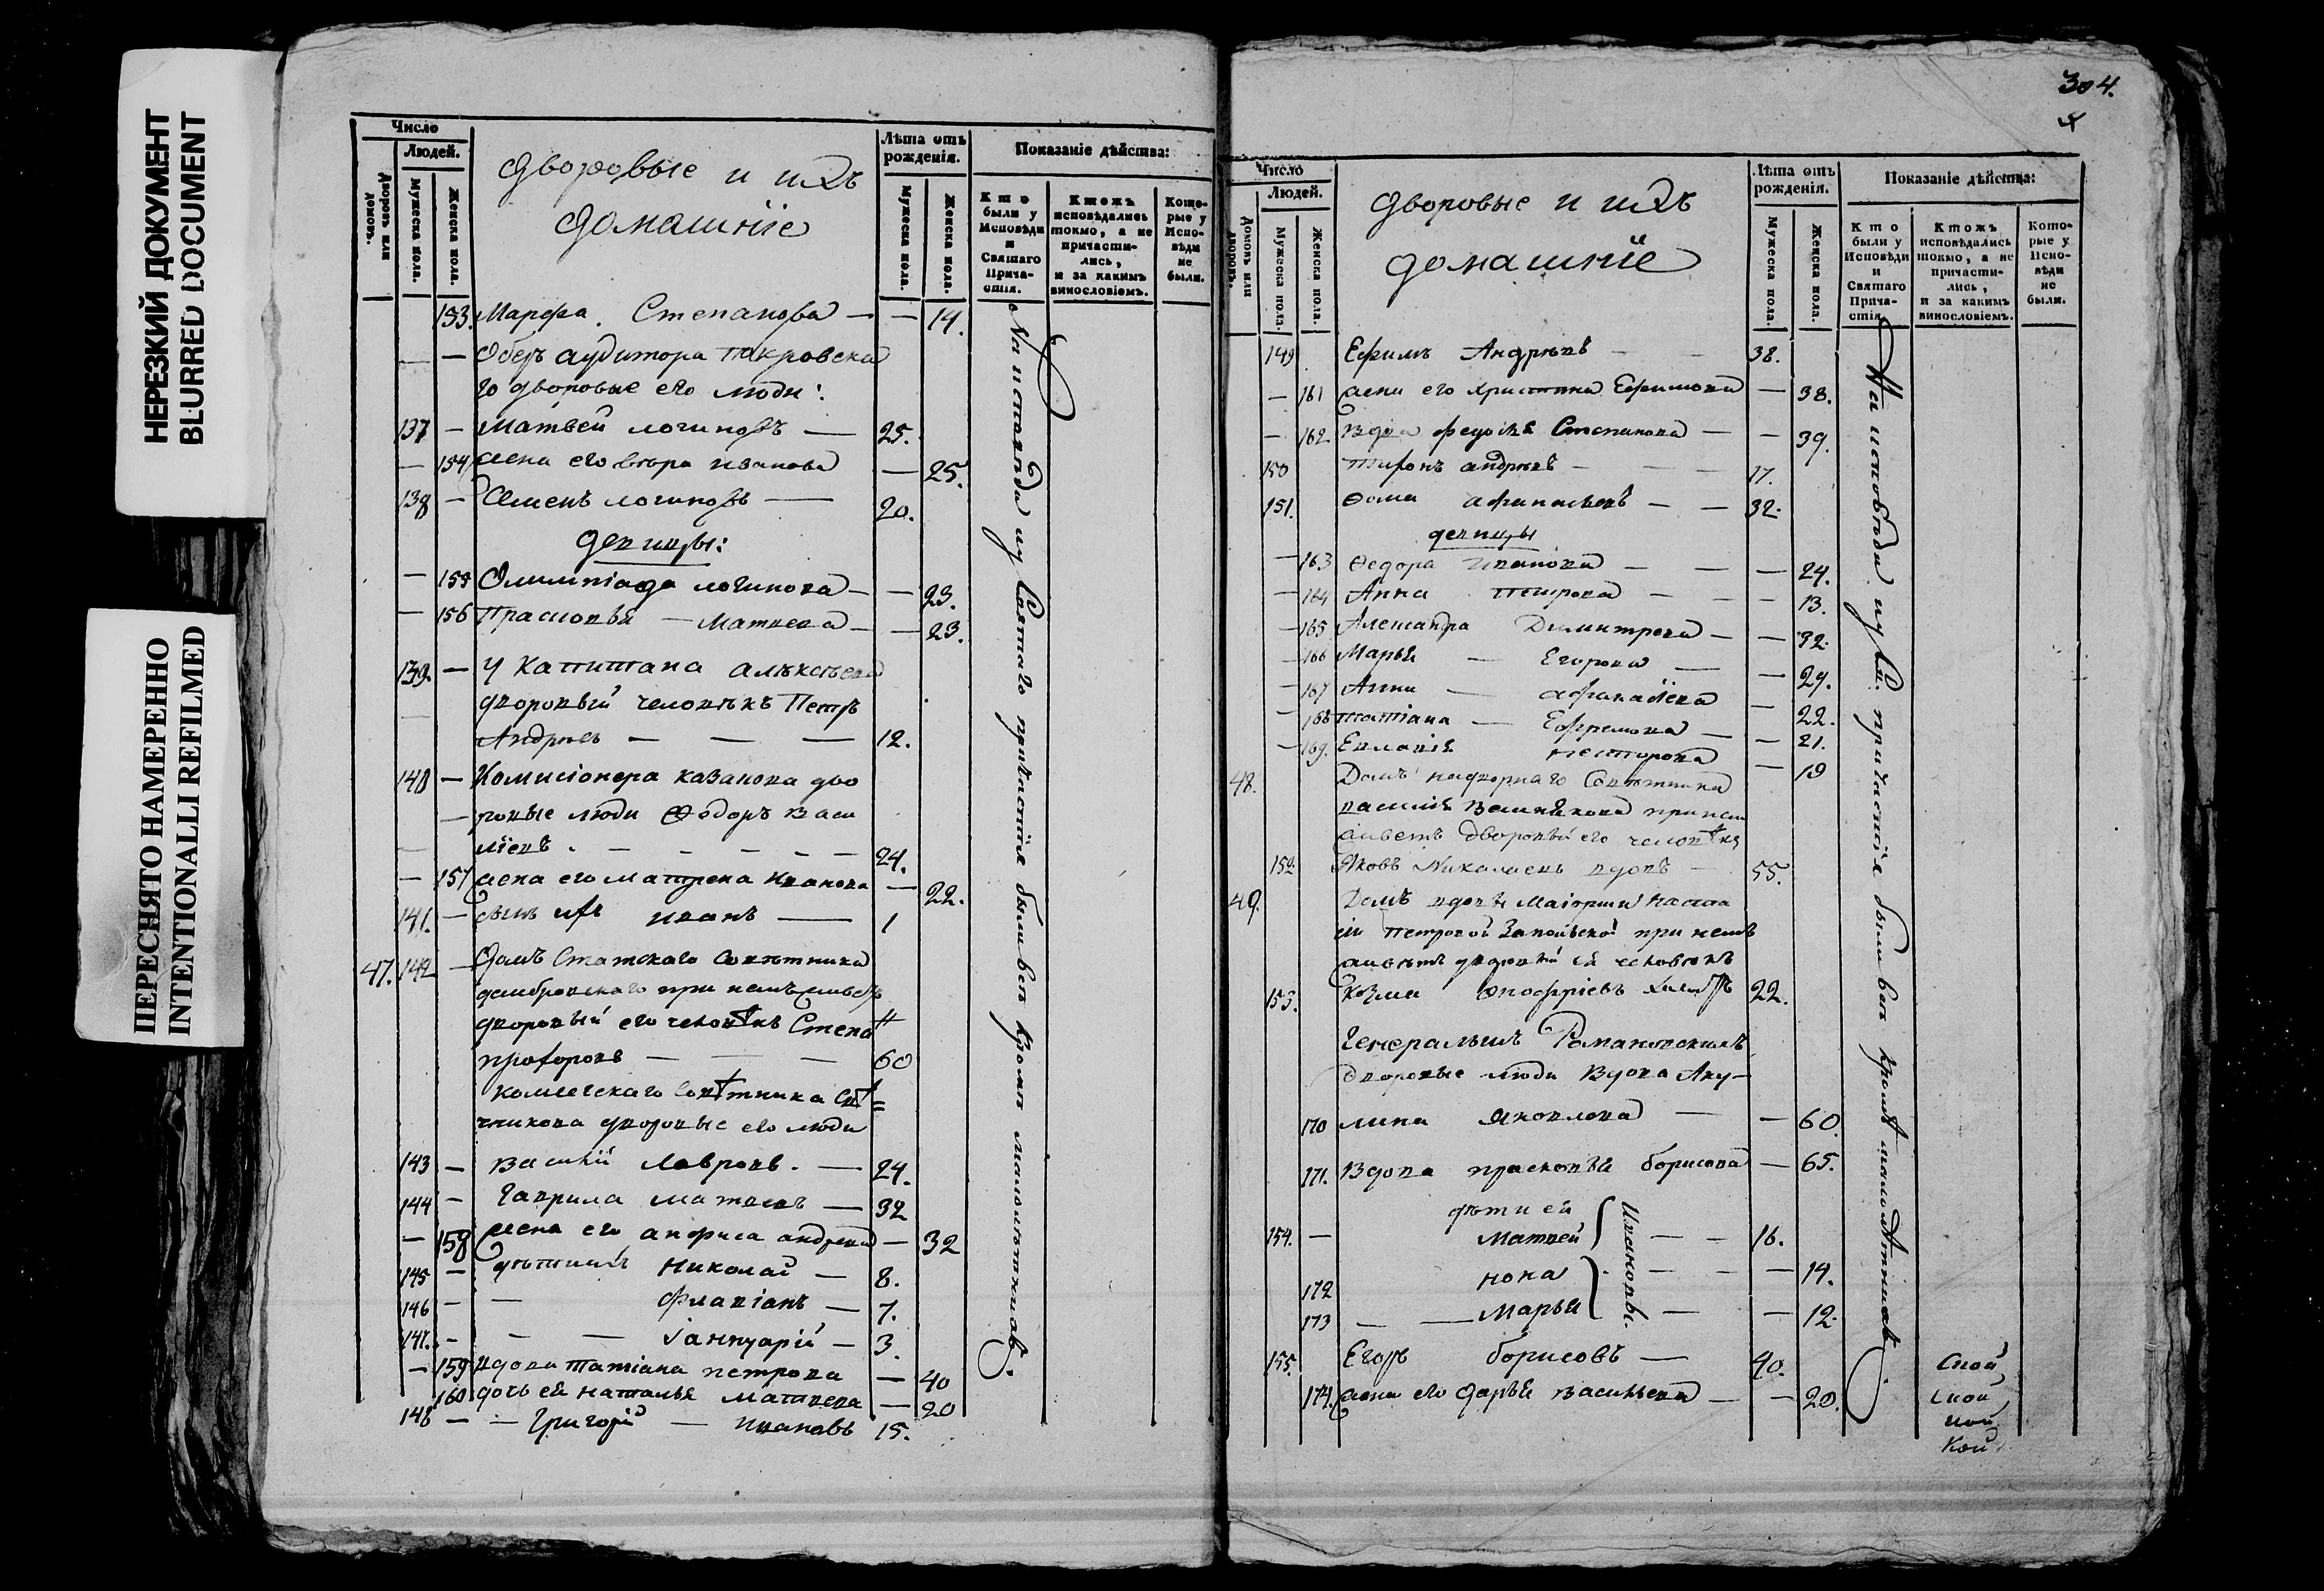 НЕРЕЗКИЙ ДОКУМЕНТ
BLURRED DOCUMENT
ПЕРЕСНЯТО НАМЕРЕННО
INTENTIONALLI REFILMED
Число
Людей.
Дворовъ или домовъ.
Мужеска пола.
Женска пола.
дворовые и ихъ
домашнiе
Лѣта отъ рожденiя.
Мужеска пола.
Женска пола.
Показанiе дѣйства:
Кто были у Исповѣди и Святаго Прича-стiя.
Ктожъ исповѣдались токмо, а не причасти-лись, и за какимъ винословiемъ.
Кото-рые у Испо-вѣди не были.
153. Марфа. Степанова — — 14.
— — Оберъ аудитора Покровска
го дворовые его люди:
137 — Матвей логиновъ — 25.
— 154 жена его вѣра иванова — 25.
138 — Семенъ логиновъ — 20.
девицы:
— 155 Олимпiада логинова — — 23.
— 156 Прасковья — Матвева — — 23.
139. — У Капитана алѣксѣева
дворовый человѣкъ Петръ
Андрѣевъ — — — 12.
140 — Комисiонера казанова дво
— ровые люди Ѳедоръ Васи
лiевъ — — — — — 24.
— 157 жена его матрена иванова — 22.
141. — сынъ ихъ иванъ — 1
47. 142 — Домъ Статскаго Совѣтника
домбровскаго при немъ живетъ
дворовый его человѣкъ Степанъ
прохоровъ — — — 60
Коллегскаго Совѣтника
дворовые его люди
143 — василiй лавровъ. — 24.
144 — гаврила матвевъ — 32
— 158 жена его анфиса андрева — 32
145 — дѣти ихъ николай — 8.
146 — — флавiанъ — 7.
147. — — — iаннуарiй — 3.
— 159 вдова татiана петрова — 40
160 дочь ея наталья матвева — 20
148 — — григорiй — ивановъ 15.
На исповѣди и у Святаго причастiя были всѣ кромѣ малолѣтнихъ.
304.
Число
Людей.
Домовъ или дворовъ.
Мужеска пола.
Женска пола.
дворовые и ихъ
домашнiе
Лѣта отъ рожденiя.
Мужеска пола.
Женска пола.
Показанiе дѣйства:
Кто были у Исповѣди и Святаго Прича-стiя.
Ктожъ исповѣдались токмо, а не причасти-лись, и за какимъ винословiемъ.
Кото-рые у Испо-вѣди не были.
149 Ефимъ Андрѣевъ — — 38.
— 161 жена его христина Ефимова — 38.
— 162 вдова федосья Степанова — — 39.
150 тихонъ андрѣевъ — — — 17.
151. Ѳома афанасьевъ — — 32.
девицы
— 163 Ѳедора иванова — — — 24.
— 164 Анна петрова — — — 13.
— 165 Александра Димитрева — — 32.
— 166 Марья — Егорова — — 29.
— 167 Анна — афанасiева — 22.
— 168 татiана — Ефремова — — 21.
— 169. Евлапiя несторова — 19
48. Домъ надворнаго Совѣтника
василiя при немъ
живетъ дворовый его человѣкъ
152 Яковъ Николаевъ вдовъ — 55.
49. Домъ вдовы Маiорши наста
сiи петровой Запольской при немъ
живетъ дворовый ея человѣкъ
153. Козма онофрiевъ холостъ 22.
Генеральши Романовскихъ
Дворовые люди Вдова Аку-
170 лина яковлева — — 60.
171. Вдова прасковья борисова — 65.
дѣти ей
154. — Матвей — — 16.
172 нона — — — 14.
173 — — Марья — — 12.
Ивановы.
155. Егоръ борисовъ — 40.
174. жена его дарья васильева — — 20.
На исповѣди и у Св. причастiя были всѣ кромѣ малолѣтнихъ.